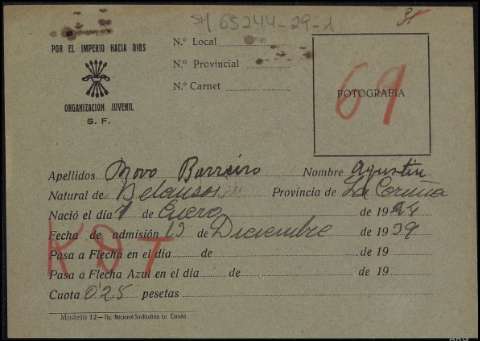 SH 65244-29-1
31
POR EL IMPERIO HACIA DIOS
N.º Local
N.º Provincial
N.º Carnet
ORGANIZACION JUVENIL
S. F.
FOTOGRAFIA
69
Apellidos Novo Barreiro Nombre Agustín
Natural de Betanzos Provincia de La Coruña
Nació el día 7 de Enero de 1924
Fecha de admisión 13 de Diciembre de 1939
Pasa a Flecha en el día de de 19
Pasa a Flecha Azul en el día de de 19
Cuota 0'25 pesetas
Modelo 12